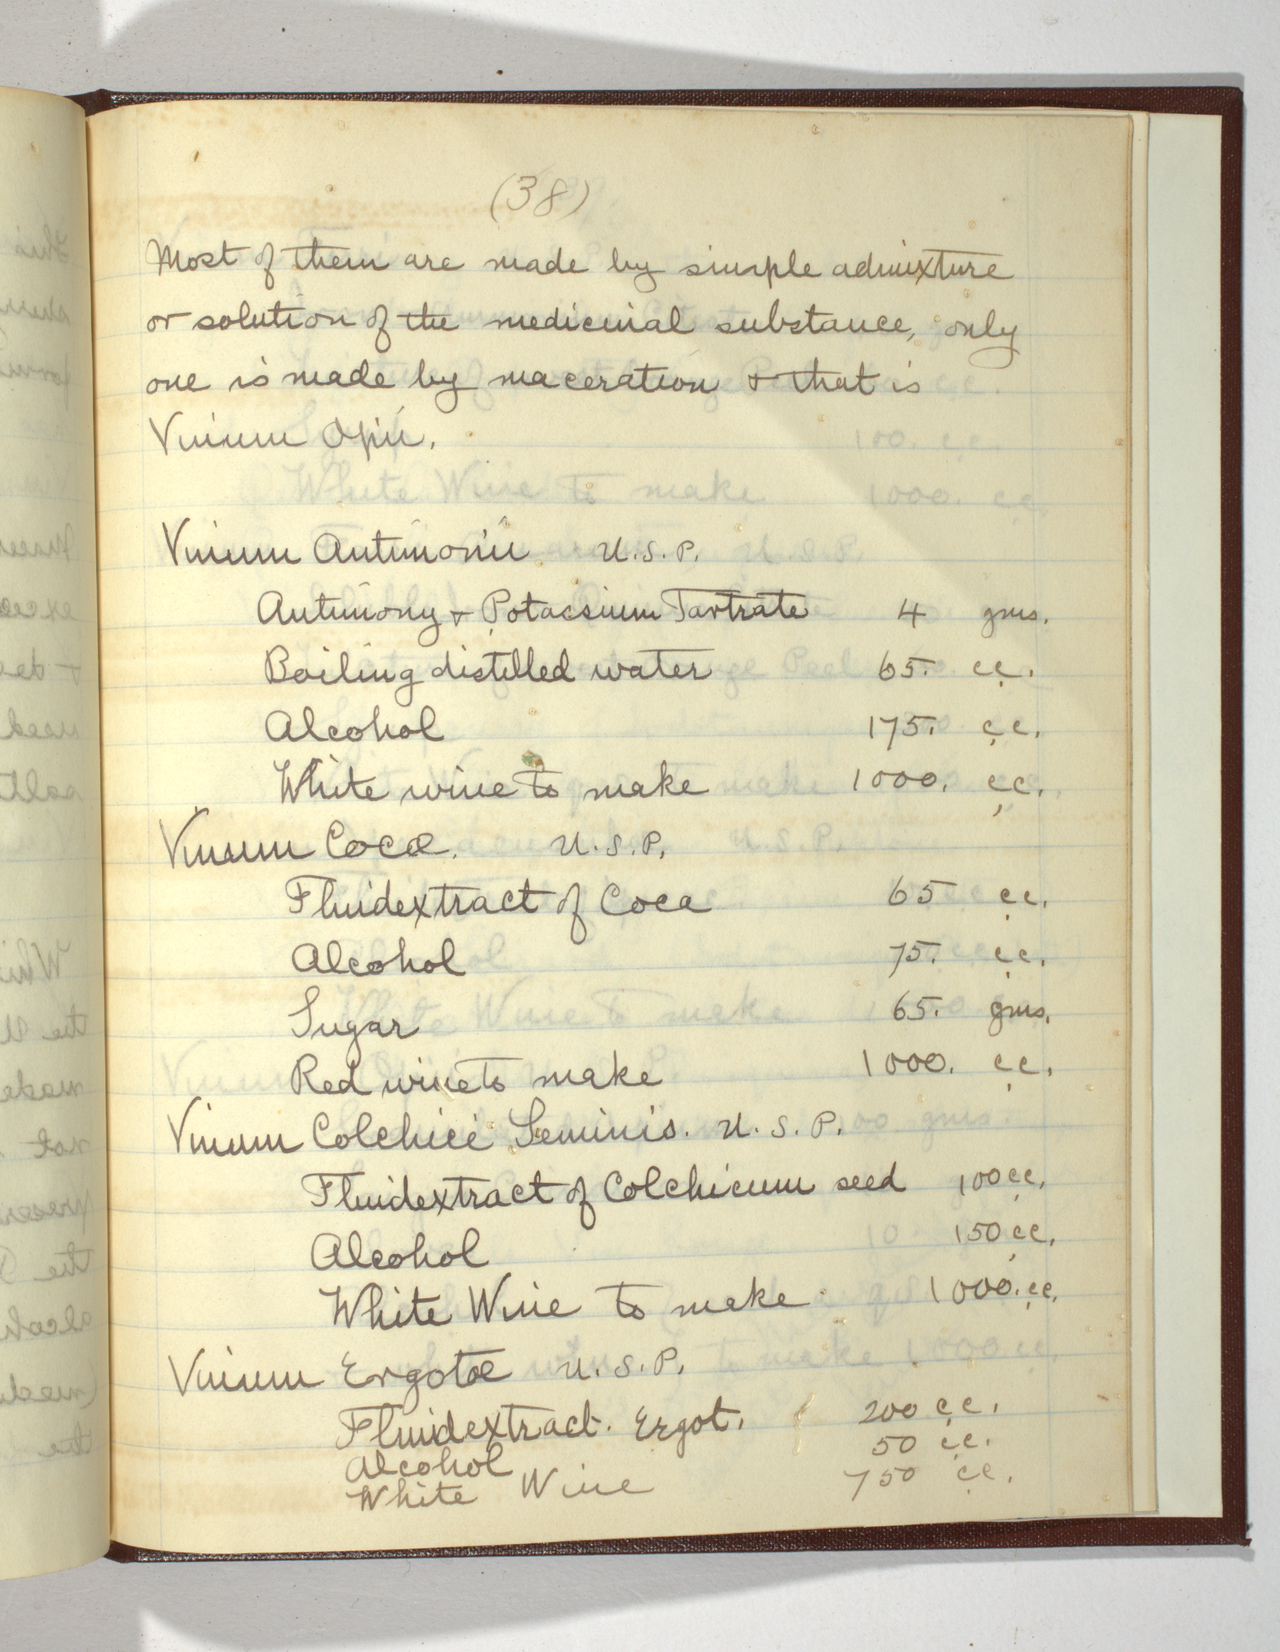 (38)
Most of them are made by simple admixture
or solution of the medicinal substance, only
one is made by maceration & that is
Vinum Opii.
Vinum Antimonii U.S.P.
Antimony & Potassium Tartrate 4 gms.
Boiling distilled water 65. cc.
Alcohol 175. cc.
White wine to make 1000. cc.
Vinum Cocæ. U.S.P.
Fluidextract of Coca 65 cc.
Alcohol 75. cc.
Sugar 65. gms.
Red wine to make 1000. cc.
Vinum Colchici Seminis. U.S.P.
Fluidextract of Colchicum seed 100 cc.
Alcohol 150 cc.
White Wine to make 1000. cc.
Vinum Ergotæ U.S.P.
Fluidextract. Ergot. 200 cc.
Alcohol 50 cc.
White Wine 750 cc.